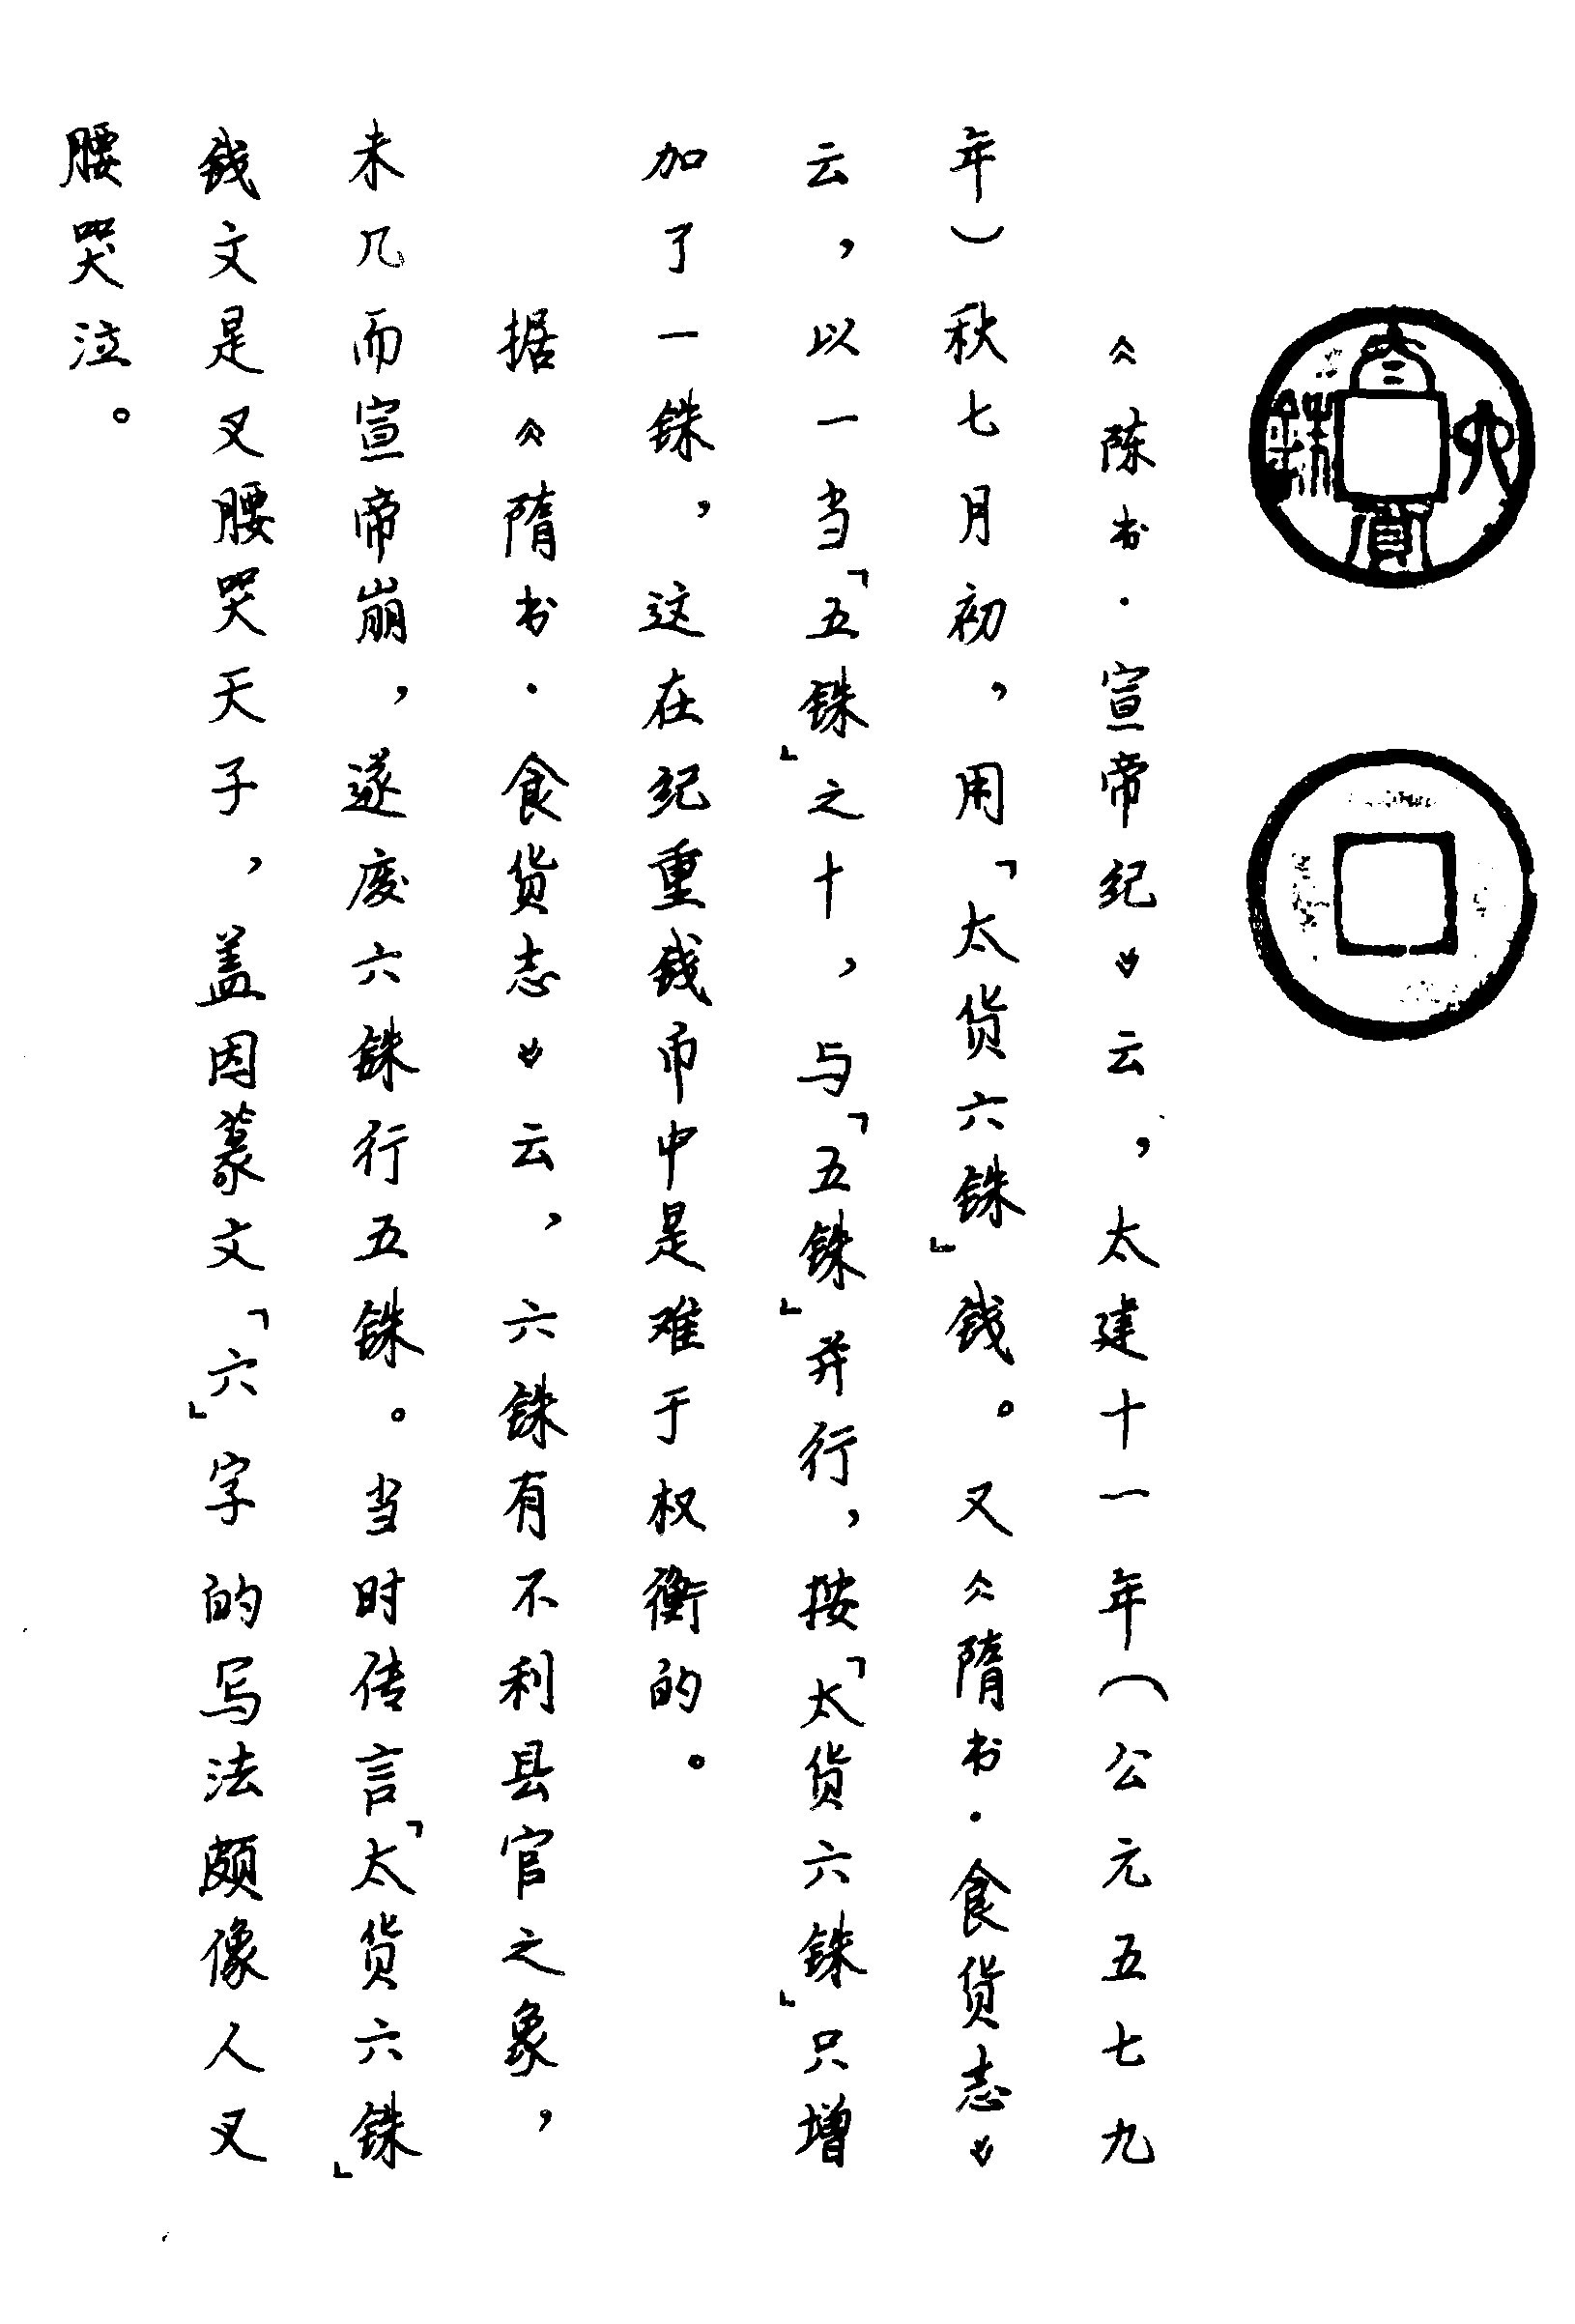 太货六铢
《陈书·宣帝纪》云，太建十一年（公元五七九
年）秋七月初，用「太货六铢」钱。又《隋书·食货志》
云，以一当「五铢」之十，与「五铢」并行，按「太货六铢」只增
加了一铢，这在纪重钱币中是难于权衡的。
据《隋书·食货志》云，六铢有不利县官之象，
未几而宣帝崩，遂废六铢行五铢。当时传言「太货六铢」
钱文是叉腰哭天子，盖因篆文「六」字的写法颇像人叉
腰哭泣。